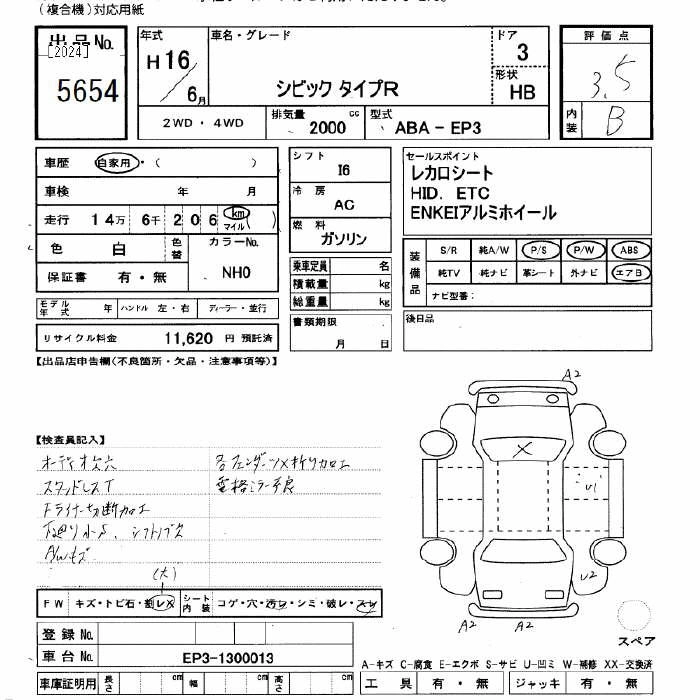 (複合機)対応用紙
出品No.
[2024]
5654
年式
H16
6月
車名・グレード
シビック タイプR
ドア
3
形状
HB
2WD・4WD
排気量 cc
2000
型式
ABA-EP3
評価点
3.5
内装
B
車歴 自家用・( )
車検 年 月
走行 14万 6千 206 km マイル ( )
色 白 色替
カラーNo.
NH0
保証書 有・無
シフト
I6
冷房
AC
燃料
ガソリン
乗車定員 名
積載量 kg
総重量 kg
書類期限
月 日
セールスポイント
レカロシート
HID. ETC
ENKEIアルミホイール
装備品
S/R 純A/W P/S P/W ABS
純TV 純ナビ 革シート 外ナビ エアB
ナビ型番:
後日品
モデル年式 年 ハンドル 左・右 ディーラー・並行
リサイクル料金 11,620 円 預託済
【出品店申告欄(不良箇所・欠品・注意事項等)】
【検査員記入】
オーディオ欠穴
スタッドレスT
ドライナー切断加工
下廻り小S、シフトノブ欠
A/Wキズ
各フェンダーツメ折り加工
電格ミラー不良
(大)
FW キズ・トビ石・割レ・X
シート内装 コゲ・穴・汚レ・シミ・破レ・スレ
登録No.
車台No. EP3-1300013
車庫証明用 長さ cm 幅 cm 高さ cm
A2
X
U1
U2
A2
A2
スペア
A-キズ C-腐食 E-エクボ S-サビ U-凹ミ W-補修 XX-交換済
工具 有・無 ジャッキ 有・無